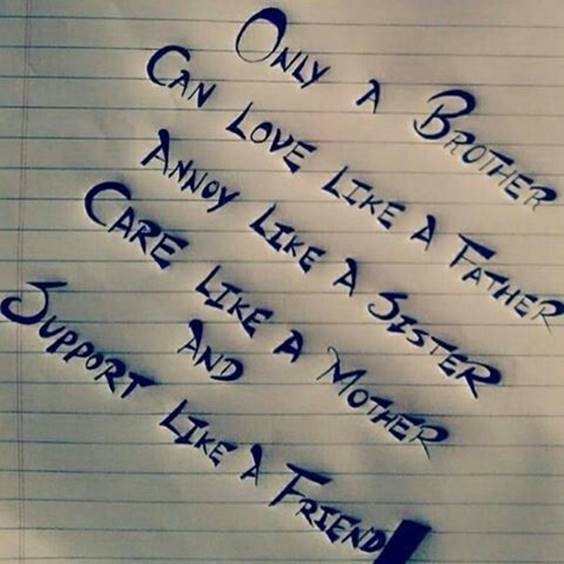 Only a Brother
Can Love Like a Father
Annoy Like a Sister
Care Like a Mother
And
Support Like a Friend